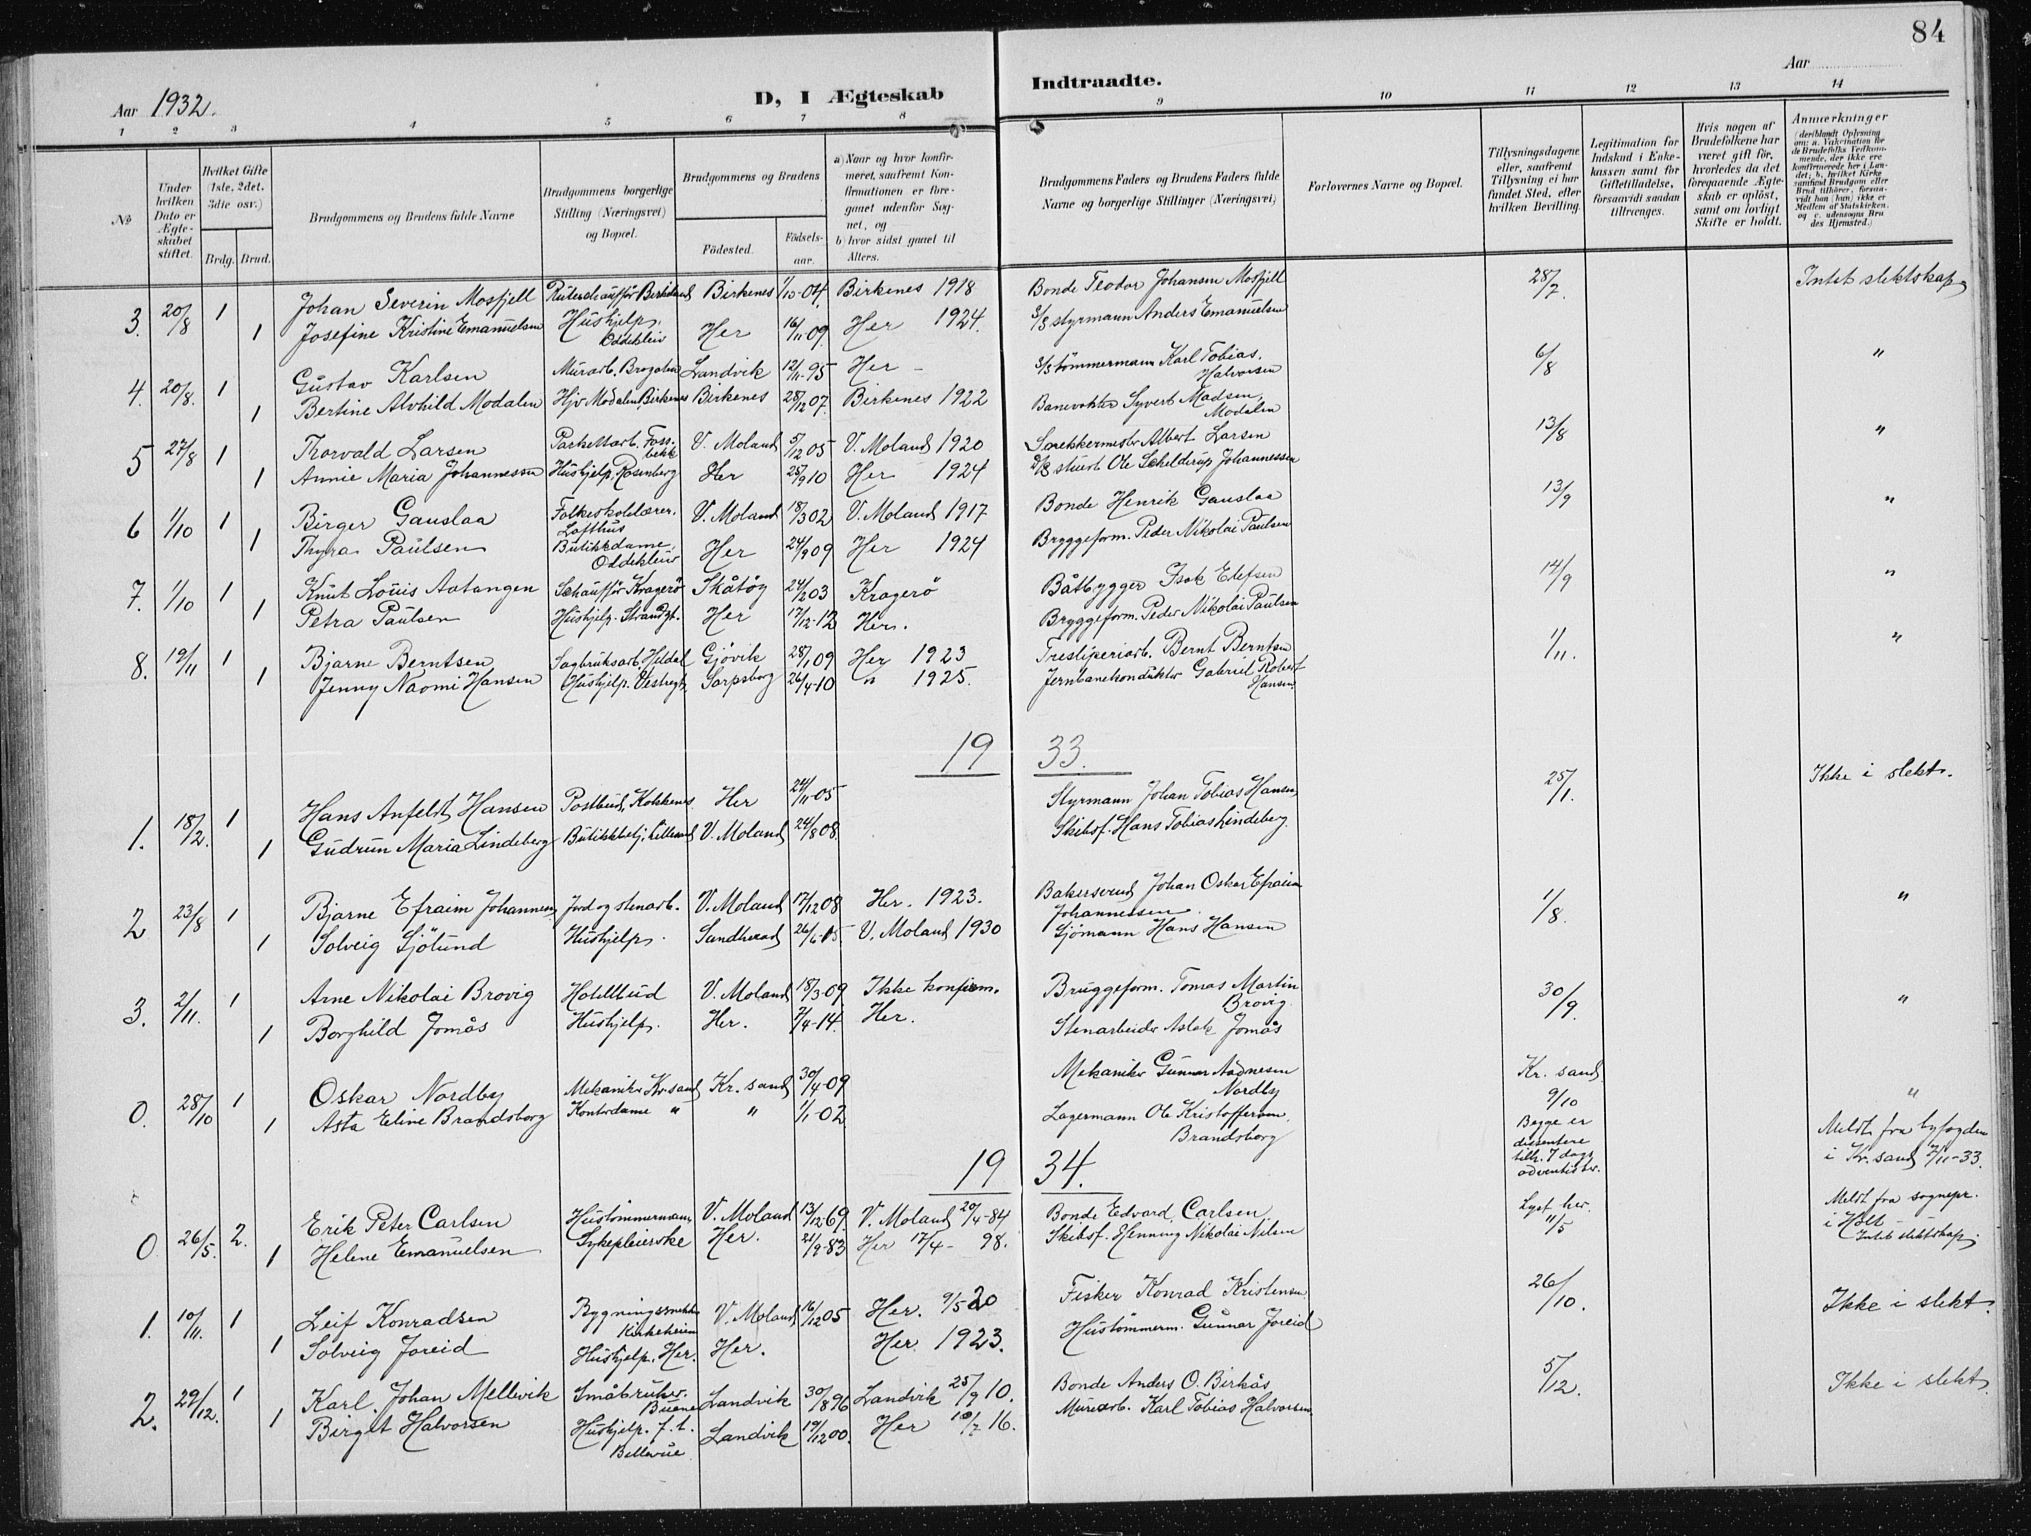 84
Aar 1932.
D, I Ægteskab Indtraadte.
Aar
1 2 3 4 5 6 7 8 9 10 11 12 13 14
№
Under hvilken Dato er Ægteskabet stiftet.
Hvilket Gifte (1ste, 2det, 3die osv.)
Brdg. Brud.
Brudgommens og Brudens fulde Navne
Brudgommens borgerlige Stilling (Næringsvei) og Bopæl.
Brudgommens og Brudens
Födested. Födselsaar.
a) Naar og hvor konfirmeret, saafremt Konfirmationen er foregaaet udenfor Sognet, og
b) hvor sidst gaaet til Alters.
Brudgommens Faders og Brudens Faders fulde Navne og borgerlige Stillinger (Næringsvei)
Forlovernes Navne og Bopæl.
Tillysningsdagene eller, saafremt Tillysning ei har fundet Sted, efter hvilken Bevilling.
Legitimation for Indskud i Enkekassen samt for Giftetilladelse, forsaavidt saadan tiltrænges.
Hvis nogen af Brudefolkene har været gift för, hvorledes da det foregaaende Ægteskab er oplöst, samt om lovligt Skifte er holdt.
Anmærkninger
(deriblandt Oplysning om: a. Vakcination for de Brudefolks Vedkommende, der ikke ere konfirmerede her i Landet; b. hvilket Kirkesamfund Brudgom eller Brud tilhörer, forsaavidt han (hun) ikke er Medlem af Statskirken, og c. udensogns Brudes Hjemsted.)
3. 20/8 1 Johan Severin Mosfjell Rutechauffør Birkeland Birkenes 1/10-04. Birkenes 1918 Bonde Teodor Johansen Mosfjell 28/7. Intet slektskap
1 Josefine Kristine Emanuelsen Hushjelp. Oddekleiv Her 16/11 09 Her 1924. S/S styrmann Anders Emanuelsen
4. 20/8. 1 Gustav Karlsen Murarb. Landvik 12/11-95 Her - S/S tömmermann Karl Tobias Halvorsen 6/8 "
1 Bertine Alvhild Modalen Hjv Modalen, Birkenes Birkenes 28/12 07. Birkenes 1922 Banevokter Syvert Madsen, Modalen
5 27/8 1 Thorvald Larsen Parkettarb. Fossbekk V. Moland 5/12 05 V. Moland 1920 Albert Larsen 13/8 "
1 Annie Maria Johannessen Hushjelp, Rosenberg Her 25/9 10 Her 1924 stuert Ole Schelderup Johannessen
6 1/10 1 Birger Gauslaa Folkeskolelærer. Lofthus V. Moland 18/3 02 V. Moland 1917 Bonde Henrik Gauslaa 13/9 "
1 Thyra Paulsen Butikkdame, Oddekleiv Her 24/9 09 Her 1924 Bryggeform. Peder Nikolai Paulsen
7. 1/10 1 Knut Louis Aatangen Schauffør Kragerö Skåtöy 24/2 03 Kragerö Båtbygger Isak Elefsen 14/9 "
1 Petra Paulsen Hushjelp. Strandgt. Her 17/12-12 Her. Bryggeform. Peder Nikolai Paulsen
8. 19/11 1 Bjarne Berntsen Sagbruksarb. Heldal Gjövik 28/1 09 Her 1923 Tresliperiarb. Bernt Berntsen 1/11. "
1 Jenny Naomi Hansen Hushjelp. Vestregt. Sarpsborg 26/4-10 " 1925. Jernbanekonduktør Gabriel Robert Hansen
19 33.
1. 18/2. 1 Hans Anfeldt Hansen Postbud, Kokkenes Her 24/11-05 Styrmann Johan Tobias Hansen, 25/1. Ikke i slekt.
1 Gudrun Maria Lindeberg Butikkbetj. Lillesand V. Moland 24/8 08 Skibsf. Hans Tobias Lindeberg.
2 23/8 1 Bjarne Efraim Johannessen Jord og stenarb. V. Moland 17/12 08 Her. 1923. Bakersvend Johan Oskar Efraim Johannessen 1/8. "
1 Solveig Sjölund Hushjelp. Sandherad 26/6-15 V. Moland 1930 Sjömann Hans Hansen
3. 2/11. 1 Arne Nikolai Brovig Hotellbud V. Moland 18/3-09 Ikke konfirm. Bruggeform. Tomas Martin Brovig. 30/9. "
1 Borghild Jomås Hushjelp. Her. 7/4-14. Her. Stenarbeider Aslak Jomås
0. 28/10 1 Oskar Nordby Mekaniker Kr.sand Kr. sand 30/4-09 Mekaniker Gunnar Aadnesen Nordby Kr. sand 9/10 "
1 Asta Eline Brandsborg Kontordame " " 1/1-02 Lagermann Ole Kristoffersen Brandsborg Begge er dissentere tilh. 7 dags adventistsr. Meldt fra byfogden i Kr. sand 2/11-33.
19 34.
0. 26/5. 2. Erik Peter Carlsen Hustömmermann V. Moland 13/12-69. V. Moland 20/4-84 Bonde Edvard Carlsen Lyst her. 11/5 Meldt fra sognepr. i Holt Intet slektskap.
1 Helene Emanuelsen Sykepleierske Her. 21/9-83 Her 17/4- 98. Skibsf. Henning Nikolai Nilsen
1. 10/11. 1 Leif Konradsen Bygningssnekker Kirkeheien V. Moland 16/12 05 Her. 9/5 20 Fisker Konrad Kristensen. 26/10. Ikke i slekt.
1 Solveig Joreid Hushjelp. Her. Her. Her 1923. Hustömmerm. Gunnar Joreid
2. 29/12. 1 Karl Johan Mellevik Småbruker. Landvik 30/8 96 Landvik 25/9 10. Bonde Anders O. Birkås 5/12. Ikke i slekt.
1 Birgit Halvorsen Hushjelp. f. t. Bellevue Landvik 19/12 00. Her 10/7 16. Murarb. Karl Tobias Halvorsen.